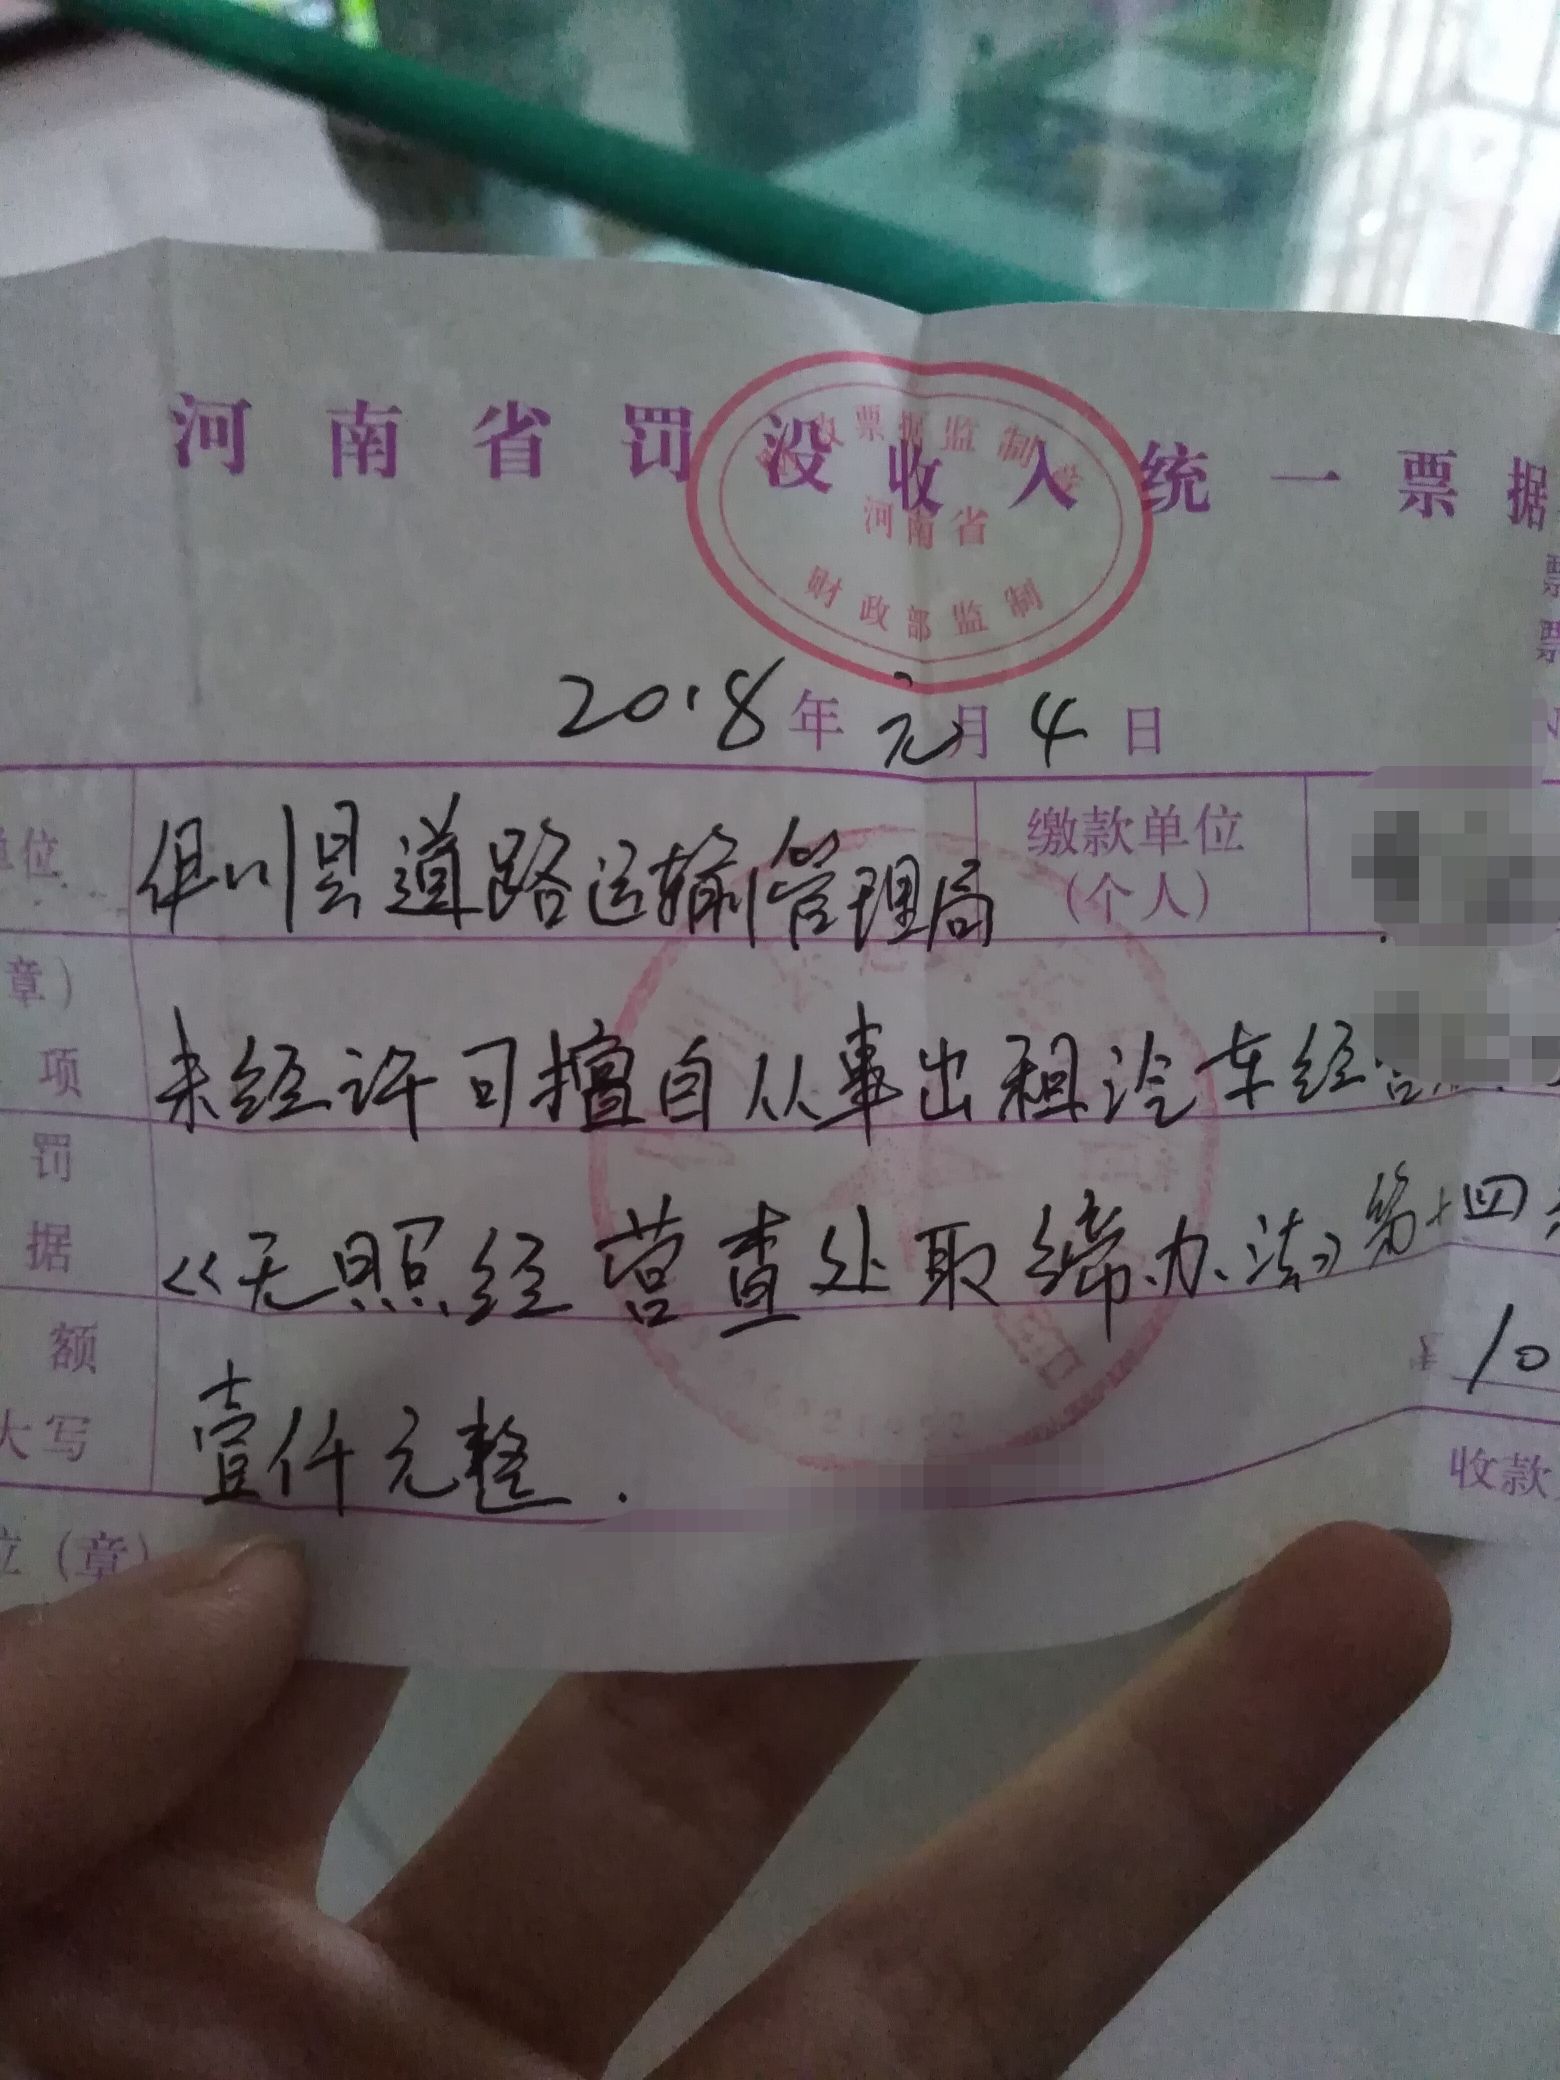 河南省罚没收入统一票据
票据监制
河南省
财政部监制
票
票
2018年元月4日
单位
伊川县道路运输管理局
缴款单位
(个人)
章)
项
未经许可擅自从事出租汽车经营
罚
据
《无照经营查处取缔办法》第十四条
额
大写
壹仟元整.
¥10
收款
位(章)